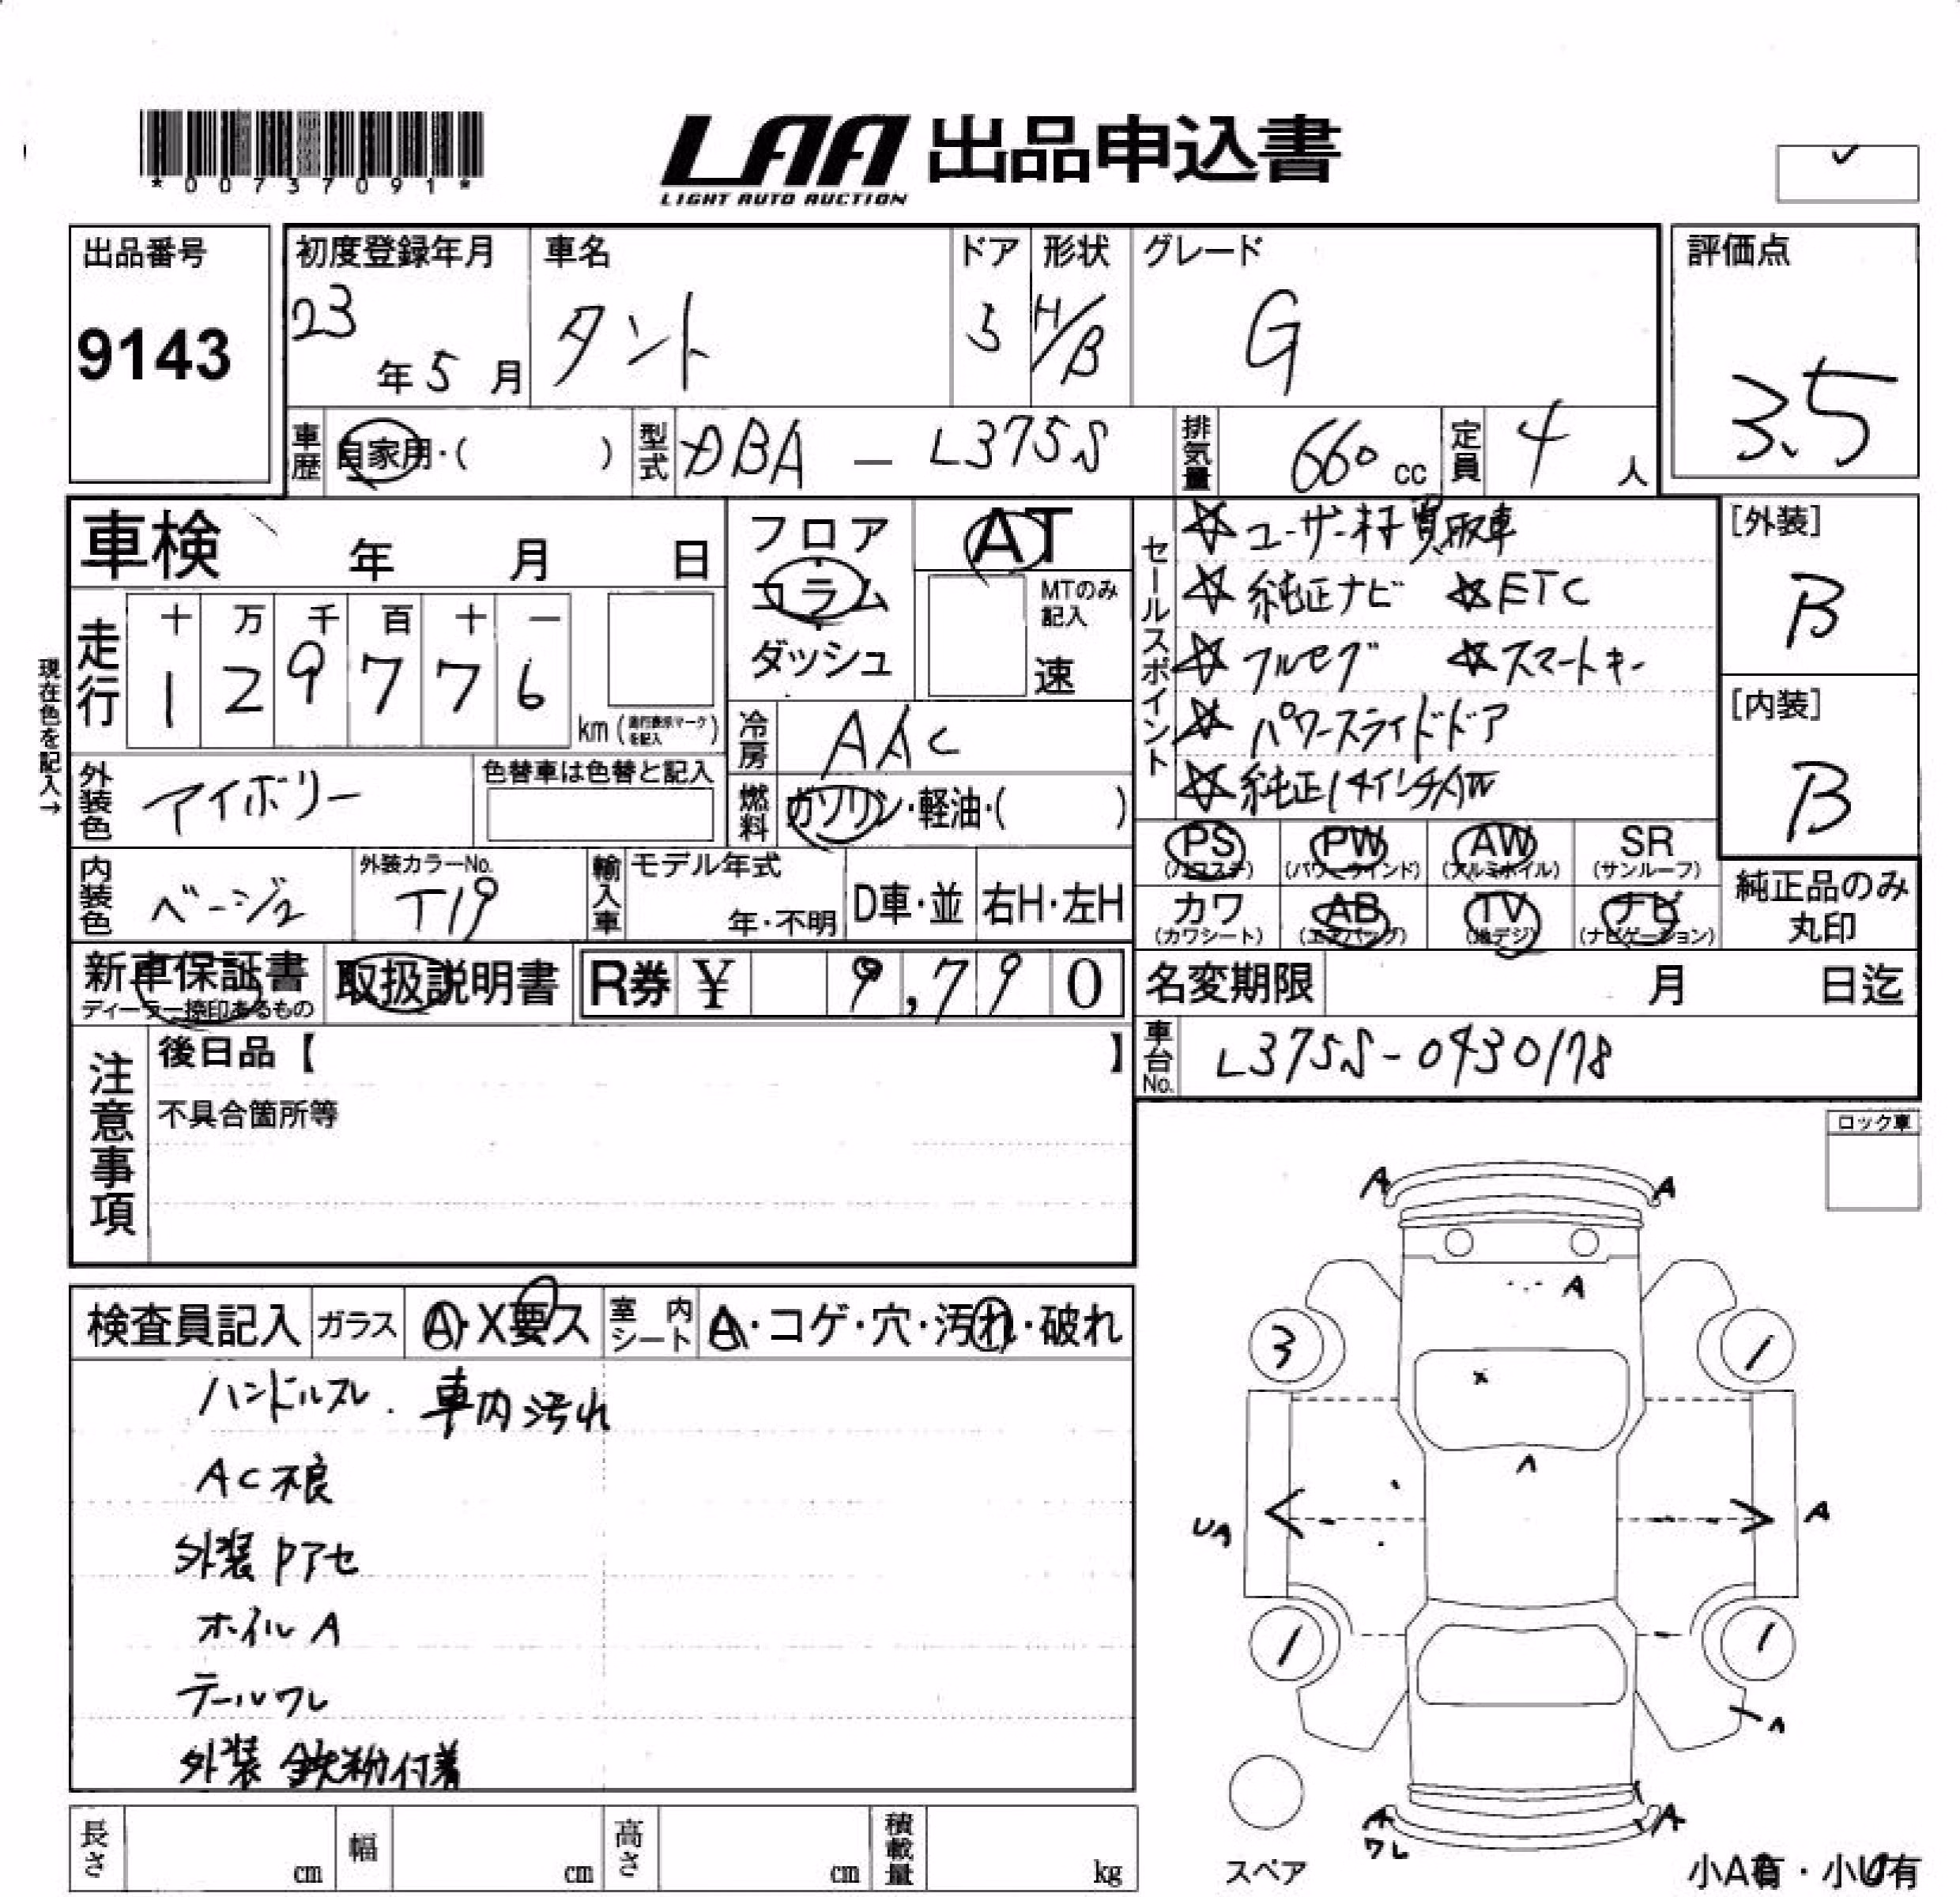 *00737091*
LAA 出品申込書
LIGHT AUTO AUCTION
✓
出品番号
9143
初度登録年月
23年5月
車名
タント
ドア
5
形状
H/B
グレード
G
評価点
3.5
車歴 自家用・( )
型式 DBA - L375S
排気量 660cc
定員 4人
車検 年 月 日
走行
十 万 千 百 十 一
1 2 9 7 7 6
km(走行表示マークを記入)
現在色を記入→
フロア
コラム
ダッシュ
AT
MTのみ記入
速
冷房 AAC
燃料 ガソリン・軽油・( )
外装色 アイボリー
色替車は色替と記入
内装色 ベージュ
外装カラーNo.
T19
輸入車
モデル年式
年・不明
D車・並
右H・左H
セールスポイント
☆ユーザー様買取車
☆純正ナビ ☆ETC
☆フルセグ ☆スマートキー
☆パワースライドドア
☆純正14インチAW
[外装]
B
[内装]
B
PS PW AW SR
(パワステ) (パワーウインド) (アルミホイル) (サンルーフ)
カワ AB TV ナビ
(カワシート) (エアバッグ) (地デジ) (ナビゲーション)
純正品のみ
丸印
新車保証書
ディーラー捺印あるもの
取扱説明書
R券 ¥ 9,790
名変期限 月 日迄
車台No. L375S-0430178
注意事項
後日品【 】
不具合箇所等
ロック車
検査員記入
ガラス A・X要ス
室内シート A・コゲ・穴・汚れ・破れ
ハンドルスレ. 車内汚れ
AC不良
外装Pアセ
ホイルA
テールワレ
外装 鉄粉付着
A A
A
3 1
x
A
UA A
1 1
A
A A
ワレ
スペア
小A有・小U有
長さ cm 幅 cm 高さ cm 積載量 kg